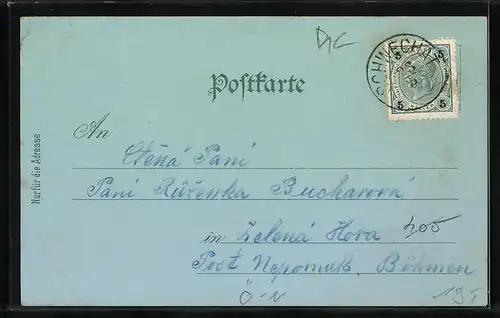 DNC
SCHWECHAT
5 5
5 5
Postkarte
Nur für die Adresse
An
Ctěná Paní
Paní Růženka Bucharová
in Zelená Hora 400
Post Nepomuk, Böhmen
Ö-N